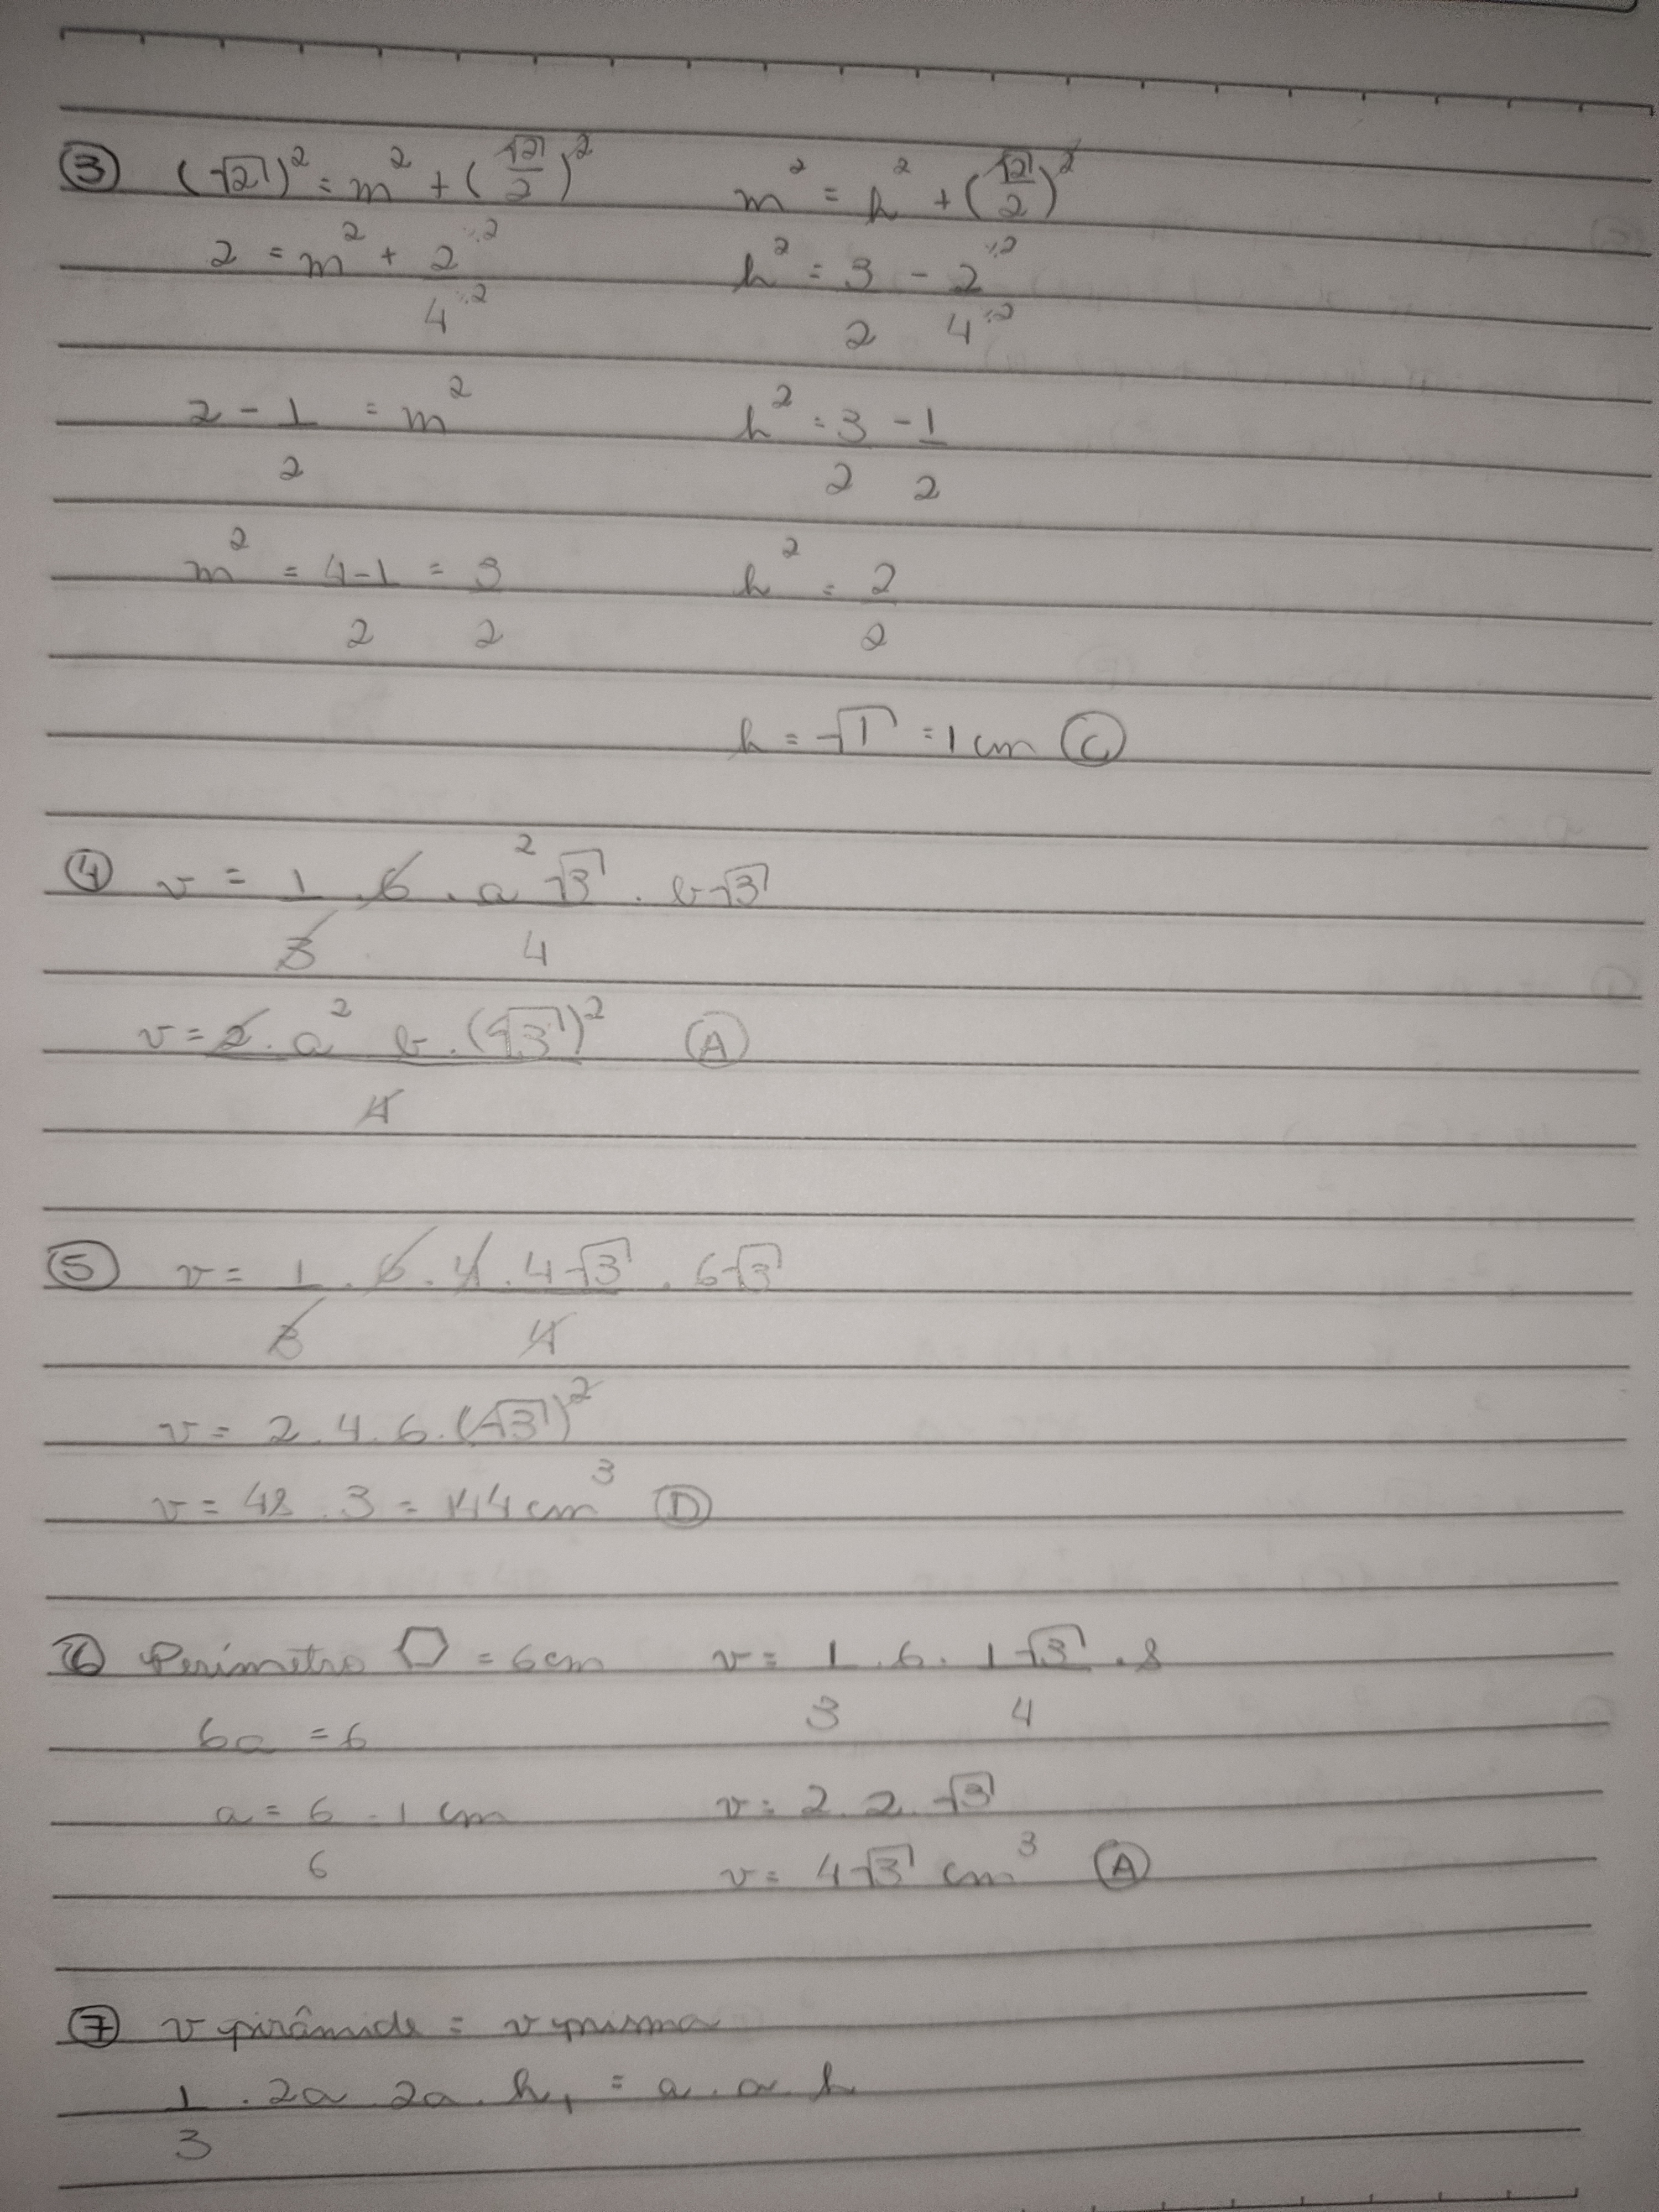 ③ (√2)² = m² + (√2/2)²    m² = h² + (√2/2)²
2 = m² + 2÷2/4÷2    h² = 3/2 - 2÷2/4÷2
2 - 1/2 = m²    h² = 3/2 - 1/2
m² = 4-1/2 = 3/2    h² = 2/2
h = √1 = 1 cm Ⓒ
④ v = 1/3 . 6 . a²√3/4 . b√3
v = 2 . a² b . (√3)²/4 Ⓐ
⑤ v = 1/3 . 6 . 4 . 4√3/4 . 6√3
v = 2 . 4 . 6 . (√3)²
v = 48 . 3 = 144 cm³ Ⓓ
⑥ Perímetro ⬡ = 6cm    v = 1/3 . 6 . 1√3/4 . 8
6a = 6
a = 6/6 = 1 cm    v = 2 . 2 . √3
v = 4√3 cm³ Ⓐ
⑦ v pirâmide = v prisma
1/3 . 2a . 2a . h₁ = a . a . h